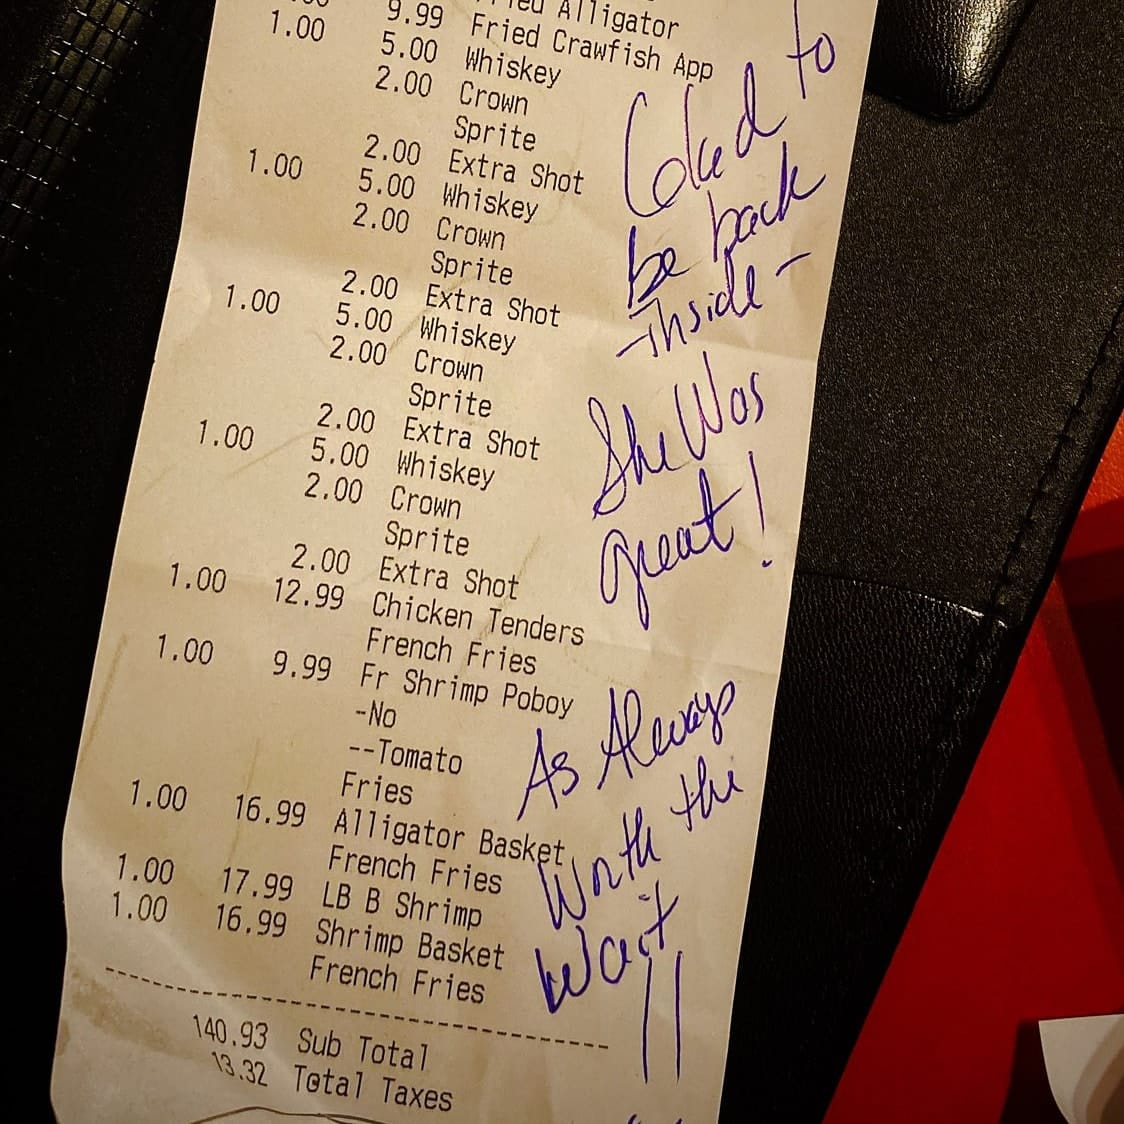 Alligator
9.99 Fried Crawfish App
1.00 5.00 Whiskey
2.00 Crown
Sprite
2.00 Extra Shot
1.00 5.00 Whiskey
2.00 Crown
Sprite
2.00 Extra Shot
1.00 5.00 Whiskey
2.00 Crown
Sprite
2.00 Extra Shot
1.00 5.00 Whiskey
2.00 Crown
Sprite
2.00 Extra Shot
1.00 12.99 Chicken Tenders
French Fries
1.00 9.99 Fr Shrimp Poboy
-No
--Tomato
Fries
1.00 16.99 Alligator Basket
French Fries
1.00 17.99 LB B Shrimp
1.00 16.99 Shrimp Basket
French Fries
140.93 Sub Total
13.32 Total Taxes
Glad to
be back
-inside-
She Was
great!
As Always
Worth the
Wait!!